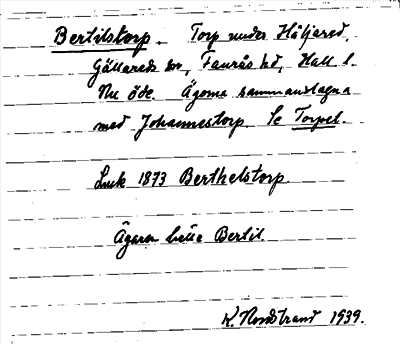 Bertilstorp. Torp under Höljared,
Gällareds sn, Faurås hd, Hall. l.
Nu öde. Ägorna sammanslagna
med Johannestorp. Se Torpet.
Luck 1873 Berthelstorp
Ägaren hette Bertil.
K. Nordstrand 1939.